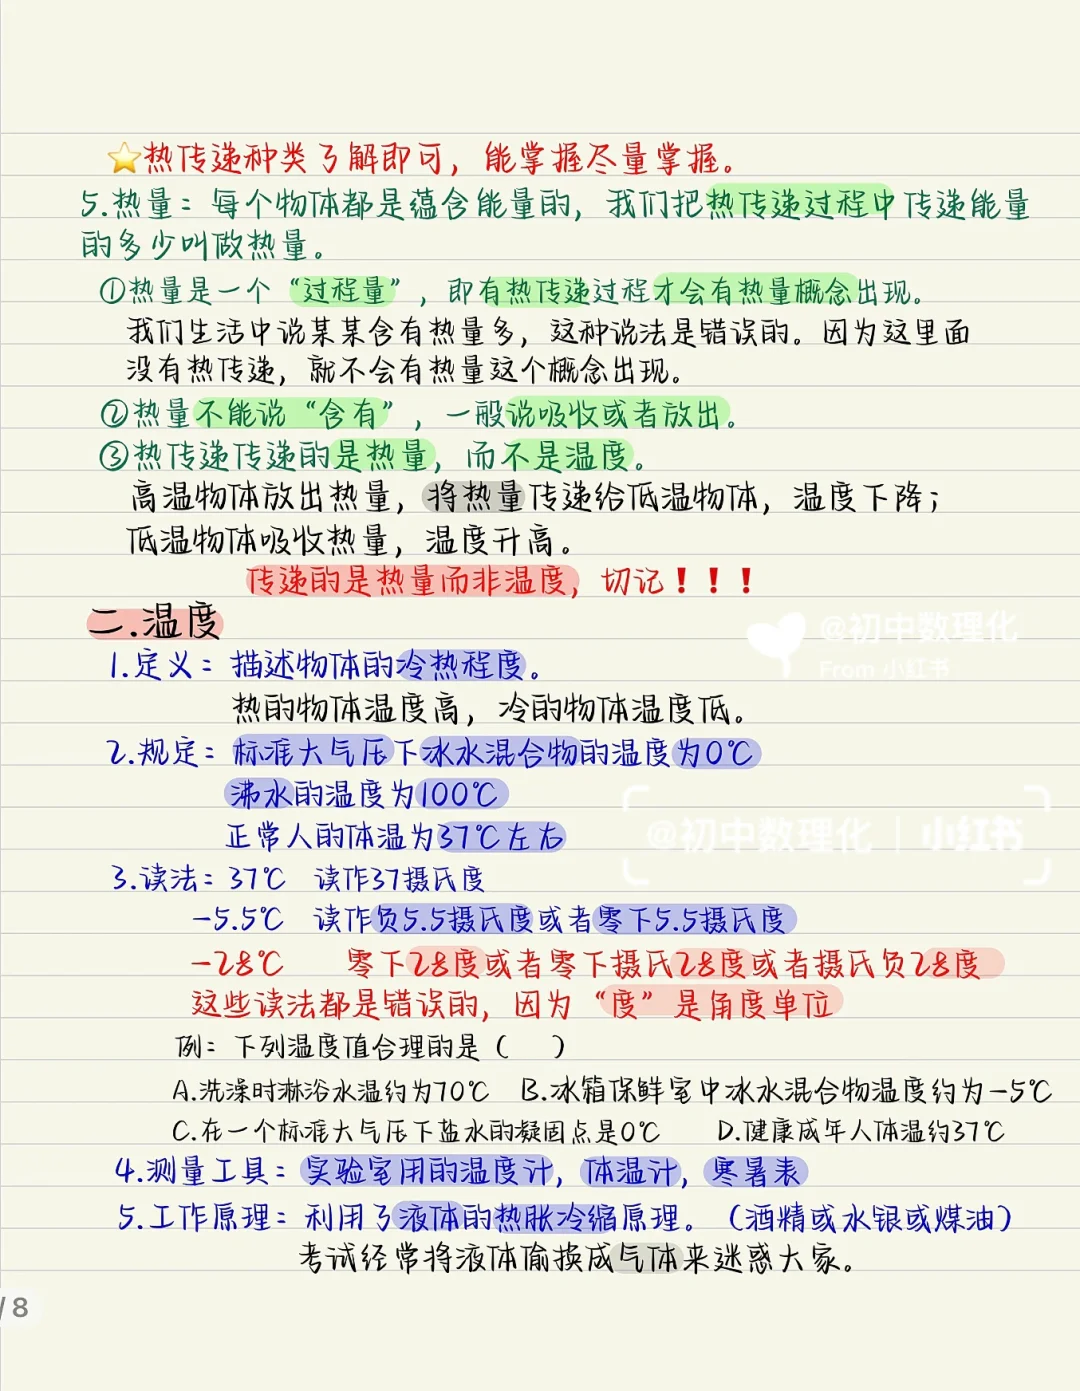 ⭐热传递种类了解即可，能掌握尽量掌握。
5.热量：每个物体都是蕴含能量的，我们把热传递过程中传递能量
的多少叫做热量。
①热量是一个“过程量”，即有热传递过程才会有热量概念出现。
我们生活中说某某含有热量多，这种说法是错误的。因为这里面
没有热传递，就不会有热量这个概念出现。
②热量不能说“含有”，一般说吸收或者放出。
③热传递传递的是热量，而不是温度。
高温物体放出热量，将热量传递给低温物体，温度下降；
低温物体吸收热量，温度升高。
传递的是热量而非温度，切记！！！
二.温度
@初中数理化
From 小红书
1.定义：描述物体的冷热程度。
热的物体温度高，冷的物体温度低。
2.规定：标准大气压下冰水混合物的温度为0℃
沸水的温度为100℃
正常人的体温为37℃左右
@初中数理化 | 小红书
3.读法：37℃ 读作37摄氏度
-5.5℃ 读作负5.5摄氏度或者零下5.5摄氏度
-28℃ 零下28度或者零下摄氏28度或者摄氏负28度
这些读法都是错误的，因为“度”是角度单位
例：下列温度值合理的是（ ）
A.洗澡时淋浴水温约为70℃ B.冰箱保鲜室中冰水混合物温度约为-5℃
C.在一个标准大气压下盐水的凝固点是0℃ D.健康成年人体温约37℃
4.测量工具：实验室用的温度计，体温计，寒暑表
5.工作原理：利用了液体的热胀冷缩原理。（酒精或水银或煤油）
考试经常将液体偷换成气体来迷惑大家。
/8